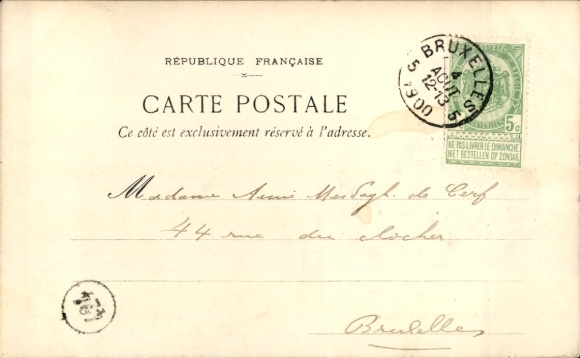 RÉPUBLIQUE FRANÇAISE
CARTE POSTALE
Ce côté est exclusivement réservé à l'adresse.
BRUXELLES 5
4
AOUT
12-13
5 1900
5c
NE PAS LIVRER LE DIMANCHE
NIET BESTELLEN OP ZONDAG
Madame de Cerf
44 rue du clocher
Bruxelles